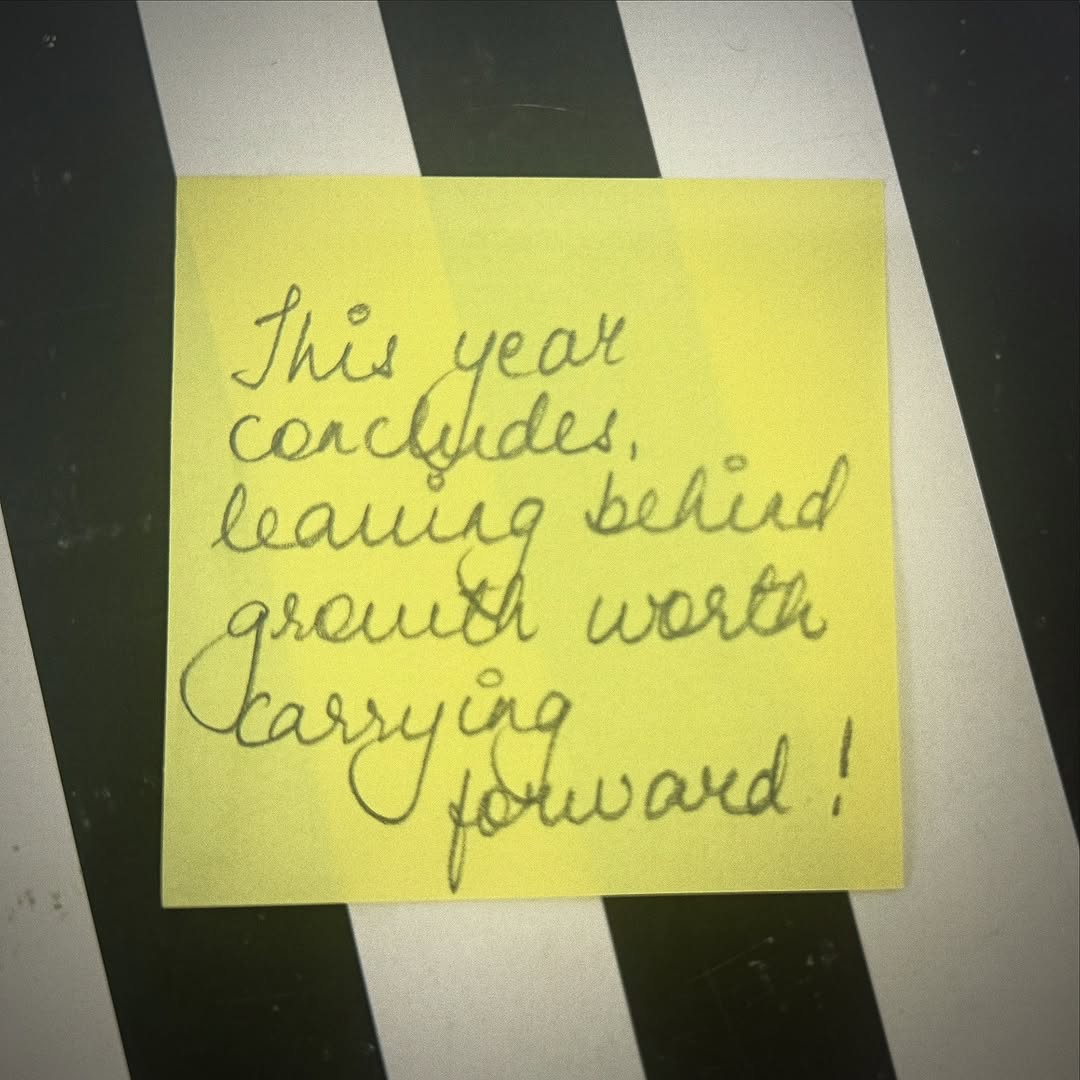 This year
concludes,
leaving behind
growth worth
carrying
forward!